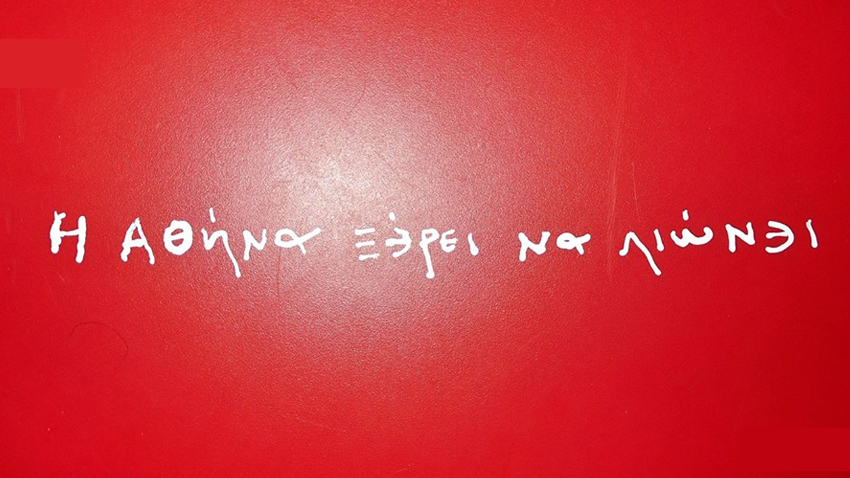 Η Αθήνα ξέρει να λιώνει